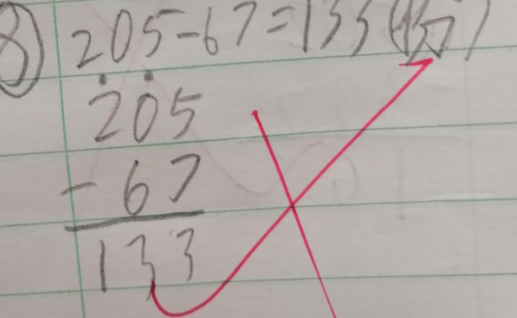 ⑧ 205-67=133(137)
205
-67
133